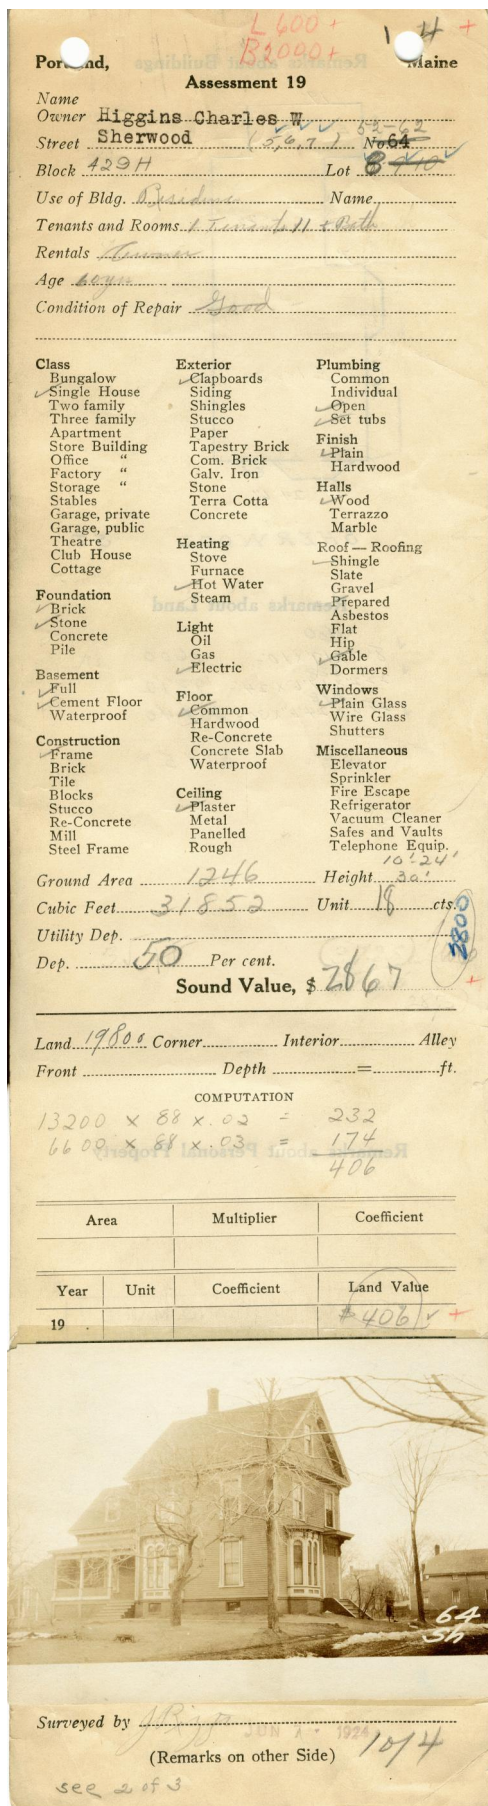 L 600 +
B 2000 +
1 4 +
Portland, Maine
Assessment 19
Name
Owner Higgins Charles W
Street Sherwood (5,6,7) 52-62 No. 64
Block 429H Lot 8 9 10
Use of Bldg. Residence Name
Tenants and Rooms 1 Tenant 11 + Bath
Rentals Owner
Age 60 yrs
Condition of Repair Good
Class
Bungalow
Single House
Two family
Three family
Apartment
Store Building
Office "
Factory "
Storage "
Stables
Garage, private
Garage, public
Theatre
Club House
Cottage
Foundation
Brick
Stone
Concrete
Pile
Basement
Full
Cement Floor
Waterproof
Construction
Frame
Brick
Tile
Blocks
Stucco
Re-Concrete
Mill
Steel Frame
Exterior
Clapboards
Siding
Shingles
Stucco
Paper
Tapestry Brick
Com. Brick
Galv. Iron
Stone
Terra Cotta
Concrete
Heating
Stove
Furnace
Hot Water
Steam
Light
Oil
Gas
Electric
Floor
Common
Hardwood
Re-Concrete
Concrete Slab
Waterproof
Ceiling
Plaster
Metal
Panelled
Rough
Plumbing
Common
Individual
Open
Set tubs
Finish
Plain
Hardwood
Halls
Wood
Terrazzo
Marble
Roof — Roofing
Shingle
Slate
Gravel
Prepared
Asbestos
Flat
Hip
Gable
Dormers
Windows
Plain Glass
Wire Glass
Shutters
Miscellaneous
Elevator
Sprinkler
Fire Escape
Refrigerator
Vacuum Cleaner
Safes and Vaults
Telephone Equip.
10'-24'
Ground Area 1246 Height 30'
Cubic Feet 31852 Unit 18 cts.
Utility Dep.
Dep. 50 Per cent.
2800
+
Sound Value, $ 2867
Land 19800 Corner Interior Alley
Front Depth = ft.
COMPUTATION
13200 x 88 x .02 = 232
6600 x 88 x .03 = 174
406
Area Multiplier Coefficient
Year Unit Coefficient Land Value
19 $ 406 +
64
Sh
Surveyed by
1924
(Remarks on other Side) 10/4
see 2 of 3
Remarks about Buildings
Remarks about Land
Remarks about Personal Property